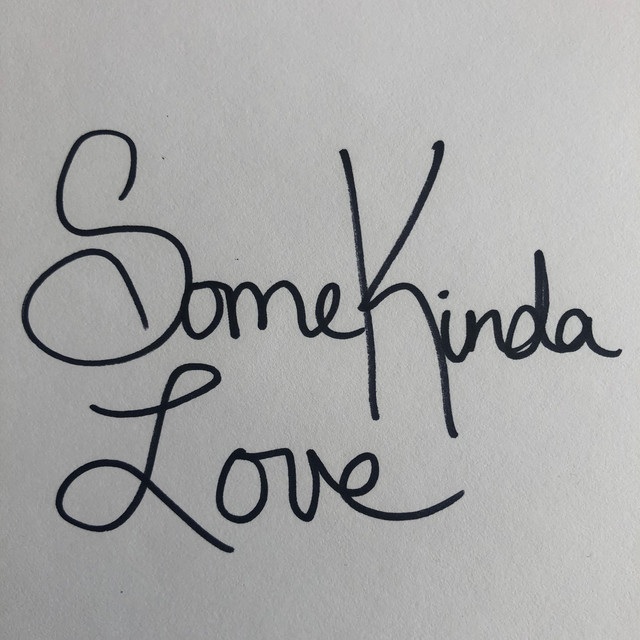 Some Kinda
Love